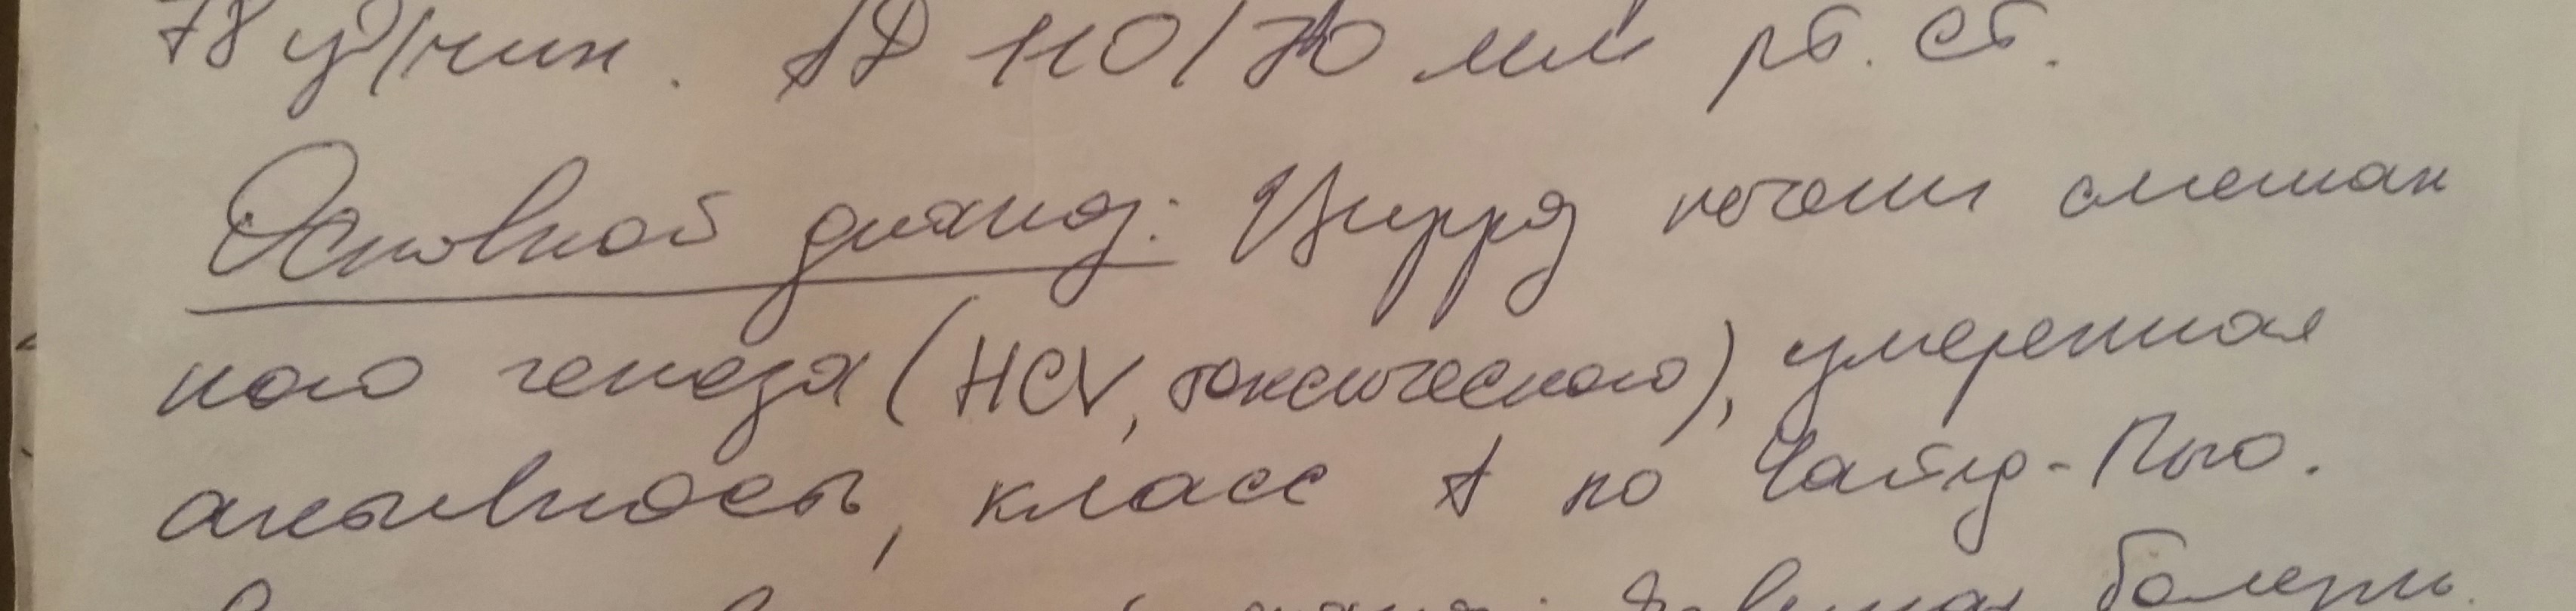 78 уд/мин. АД 110/70 мм рт. ст.
Основной диагноз: Цирроз печени смешан
ного генеза (HCV, токсического), умеренная
активность, класс А по Чайлд-Пью.
язвенная болезнь